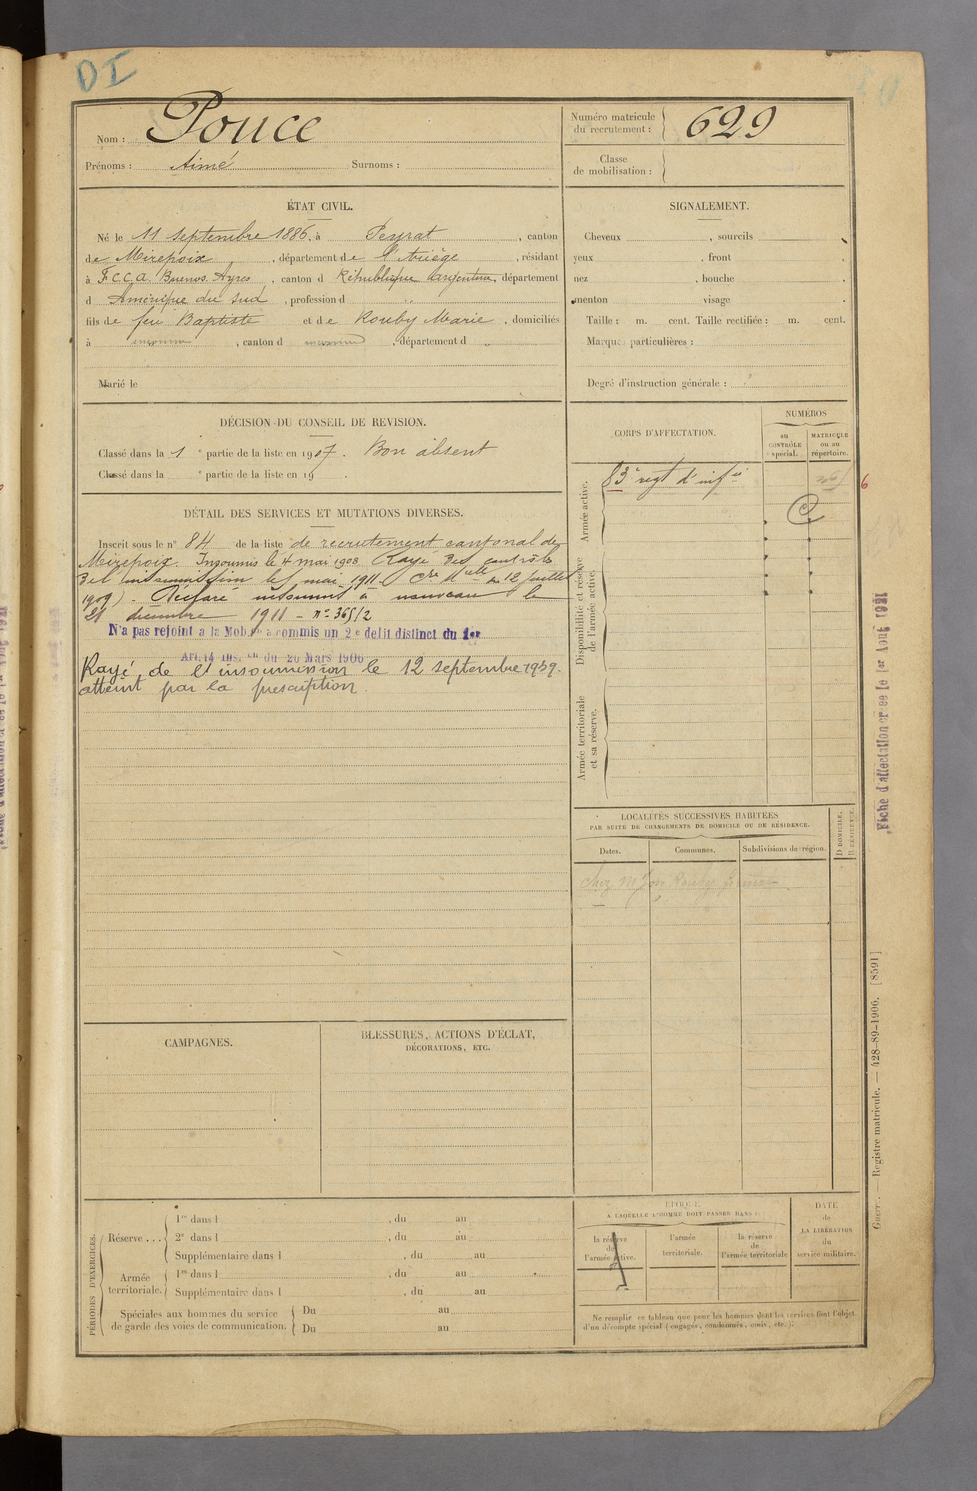 DI
Nom : Pouce
Prénoms : Aimé Surnoms :
Numéro matricule
du recrutement : 629
Classe
de mobilisation :
ÉTAT CIVIL.
Né le 11 septembre 1886, à Peyrat, canton
de Mirepoix, département de l'Ariège, résidant
à F.C.C.A. Buenos-Ayres, canton d République Argentine, département
d Amérique du Sud, profession d "
fils de feu Baptiste et de Rouby Marie, domiciliés
à inconnu, canton d inconnu, département d "
Marié le
SIGNALEMENT.
Cheveux , sourcils
yeux , front
nez , bouche
menton visage
Taille : m. cent. Taille rectifiée : m. cent.
Marques particulières :
Degré d'instruction générale :
DÉCISION DU CONSEIL DE REVISION.
Classé dans la 1 e partie de la liste en 1907. Bon absent
Classé dans la e partie de la liste en 19 .
DÉTAIL DES SERVICES ET MUTATIONS DIVERSES.
Inscrit sous le n° 84 de la liste de recrutement cantonal de
Mirepoix. Insoumis le 4 mai 1908. Rayé des contrôles
de l'insoumission le mai 1911. (Cre Mlle du 12 juillet
1909). Déclaré insoumis à nouveau le
21 décembre 1911 - n° 365/2
N'a pas rejoint a la Mob. a commis un 2e délit distinct du 1er
Art. 14 Ins. on du 20 Mars 1906
Rayé de l'insoumission le 12 septembre 1939.
atteint par la prescription.
CORPS D'AFFECTATION.
NUMÉROS
au
CONTRÔLE
spécial.
MATRICULE
ou au
répertoire.
Armée active.
83e regt d'infie
6
Disponibilité et réserve
de l'armée active.
Armée territoriale
et sa réserve.
LOCALITÉS SUCCESSIVES HABITÉES
PAR SUITE DE CHANGEMENTS DE DOMICILE OU DE RÉSIDENCE.
Dates. Communes. Subdivisions de région.
D DOMICILE.
R RÉSIDENCE.
chez M. Rouby
CAMPAGNES.
BLESSURES, ACTIONS D'ÉCLAT,
DÉCORATIONS, ETC.
PÉRIODES D'EXERCICES.
Réserve ...
1re dans l , du au
2e dans l , du au
Supplémentaire dans l , du au
Armée
territoriale.
1re dans l , du au
Supplémentaire dans l , du au
Spéciales aux hommes du service
de garde des voies de communication.
Du au
Du au
ÉPOQUE
À LAQUELLE L'HOMME DOIT PASSER DANS :
la réserve
de
l'armée active.
l'armée
territoriale.
la réserve
de
l'armée territoriale
DATE
de
LA LIBÉRATION
du
service militaire.
Ne remplir ce tableau que pour les hommes dont les services font l'objet
d'un décompte spécial (engagés, condamnés, omis, etc.).
Fiche d'affectation créée le 1er Août 1921
Guerre. — Registre matricule. — 428-89-1906. [8591]